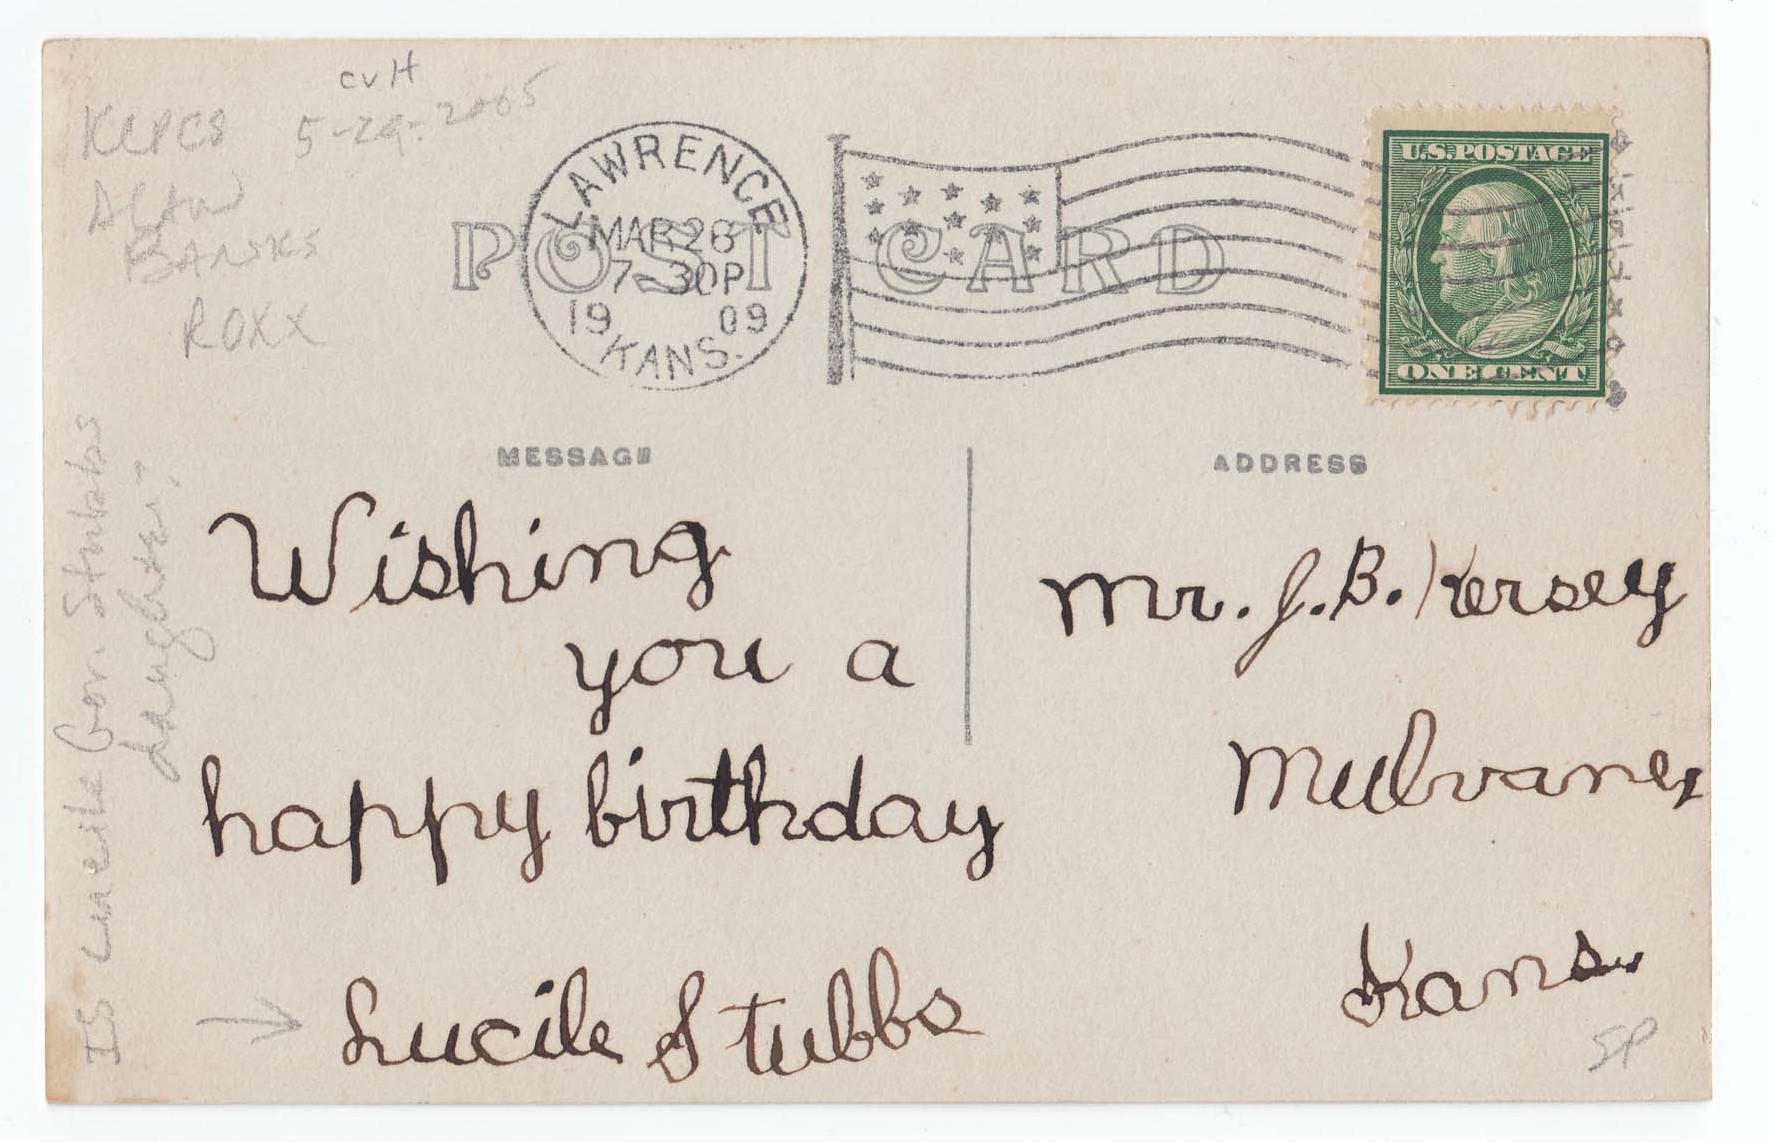 cvH
5-29-2005
KCPCS
ALAN
BANKS
ROXX
LAWRENCE
MAR 26
7-30P
19 09
KANS.
POST CARD
U.S. POSTAGE
ONE CENT
MESSAGE
ADDRESS
Wishing
you a
happy birthday
Lucile Stubbs
Mr. J. B. Kersey
Mulvane,
Kans.
SP
Is Lucile Gov. Stubbs
daughter?